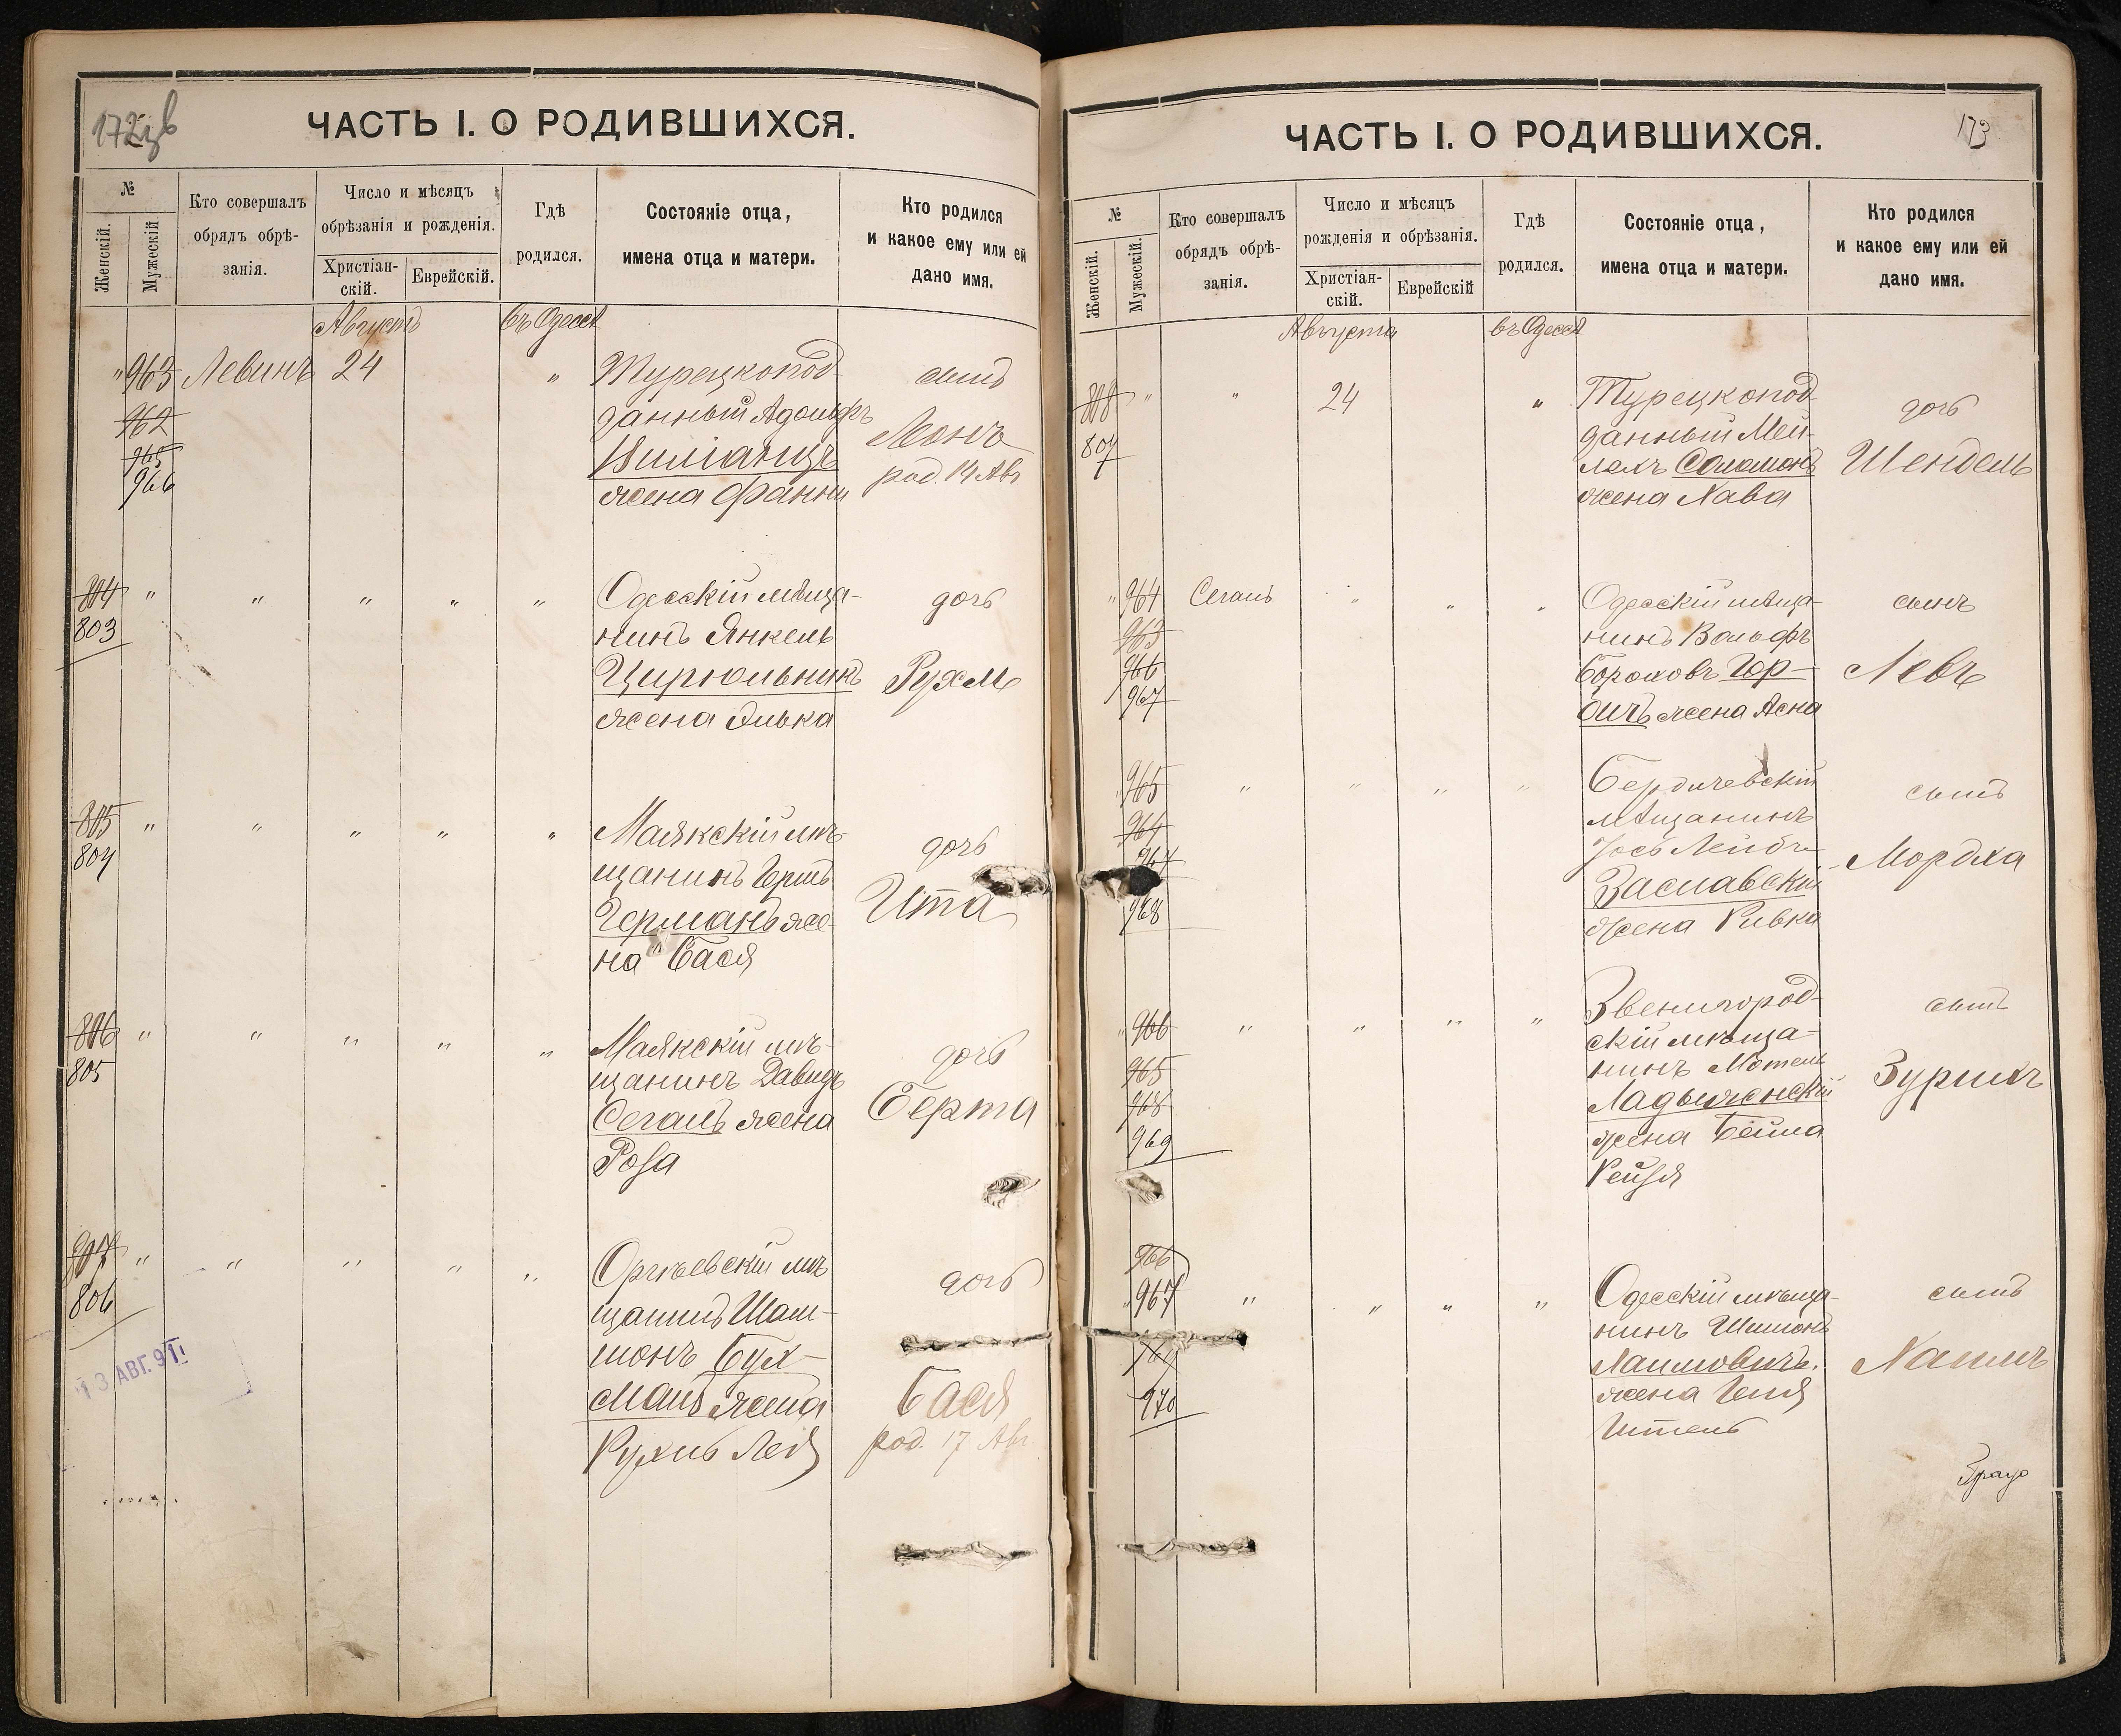 172
ЧАСТЬ I. О РОДИВШИХСЯ.
№
Женскій.
Мужескій
Кто совершалъ
обрядъ обрѣ-
занія.
Число и мѣсяцъ
обрѣзанія и рожденія.
Христіан-
скій.
Еврейскій.
Гдѣ
родился.
Состояніе отца,
имена отца и матери.
Кто родился
и какое ему или ей
дано имя.
Августъ
въ Одессѣ
" 963 Левинъ 24 " Турецкопод-
данный Адольфъ
жена Фанни
962
965
966
сынъ
Леонъ
род. 14 Авг
804 " " " " " Одесскій мѣща-
803
нинъ Янкель
Цирюльникъ
жена Элька
дочь
Рухль
805 " " " " " Маякскій мѣ-
804
щанинъ Гершъ
Германъ же-
на Бася
дочь
Ита
806 " " " " " Маякскій мѣ-
805
щанинъ Давидъ
Сегаль жена
Роза
дочь
Берта
807 " " " " " Оргѣевскій мѣ
806
щанинъ Шам-
шонъ Бух-
манъ жена
Рухль Лея
дочь
Бася
род. 17 Авг
13 АВГ. 91
ЧАСТЬ I. О РОДИВШИХСЯ.
173
№
Женскій.
Мужескій.
Кто совершалъ
обрядъ обрѣ-
занія.
Число и мѣсяцъ
рожденія и обрѣзанія.
Христіан-
скій.
Еврейскій
Гдѣ
родился.
Состояніе отца,
имена отца и матери.
Кто родился
и какое ему или ей
дано имя.
Августа
въ Одессѣ
808 " " 24 " Турецкопод
807
данный Мей-
лехъ Соломонъ
жена Хава
дочь
Шендель
" 964 Сегаль " " " Одесскій мѣща-
963
966
967
нинъ Вольфъ
Бороховъ Гор-
бичъ жена Асна
сынъ
Левъ
" 965 " " " " Бердичевскій
964
967
968
мѣщанинъ
Іось Лейбъ
Заславскій
жена Ривка
сынъ
Мордха
" 966 " " " " Звенигород-
965
968
969
скій мѣща-
нинъ Мотель
Ладыженскій
жена Бейла
Рейзя
сынъ
Зурихъ
966
" 967 " " " " Одесскій мѣща-
969
970
нинъ Шимонъ
Хаимовичъ
жена Геня
Итель
сынъ
Хаимъ